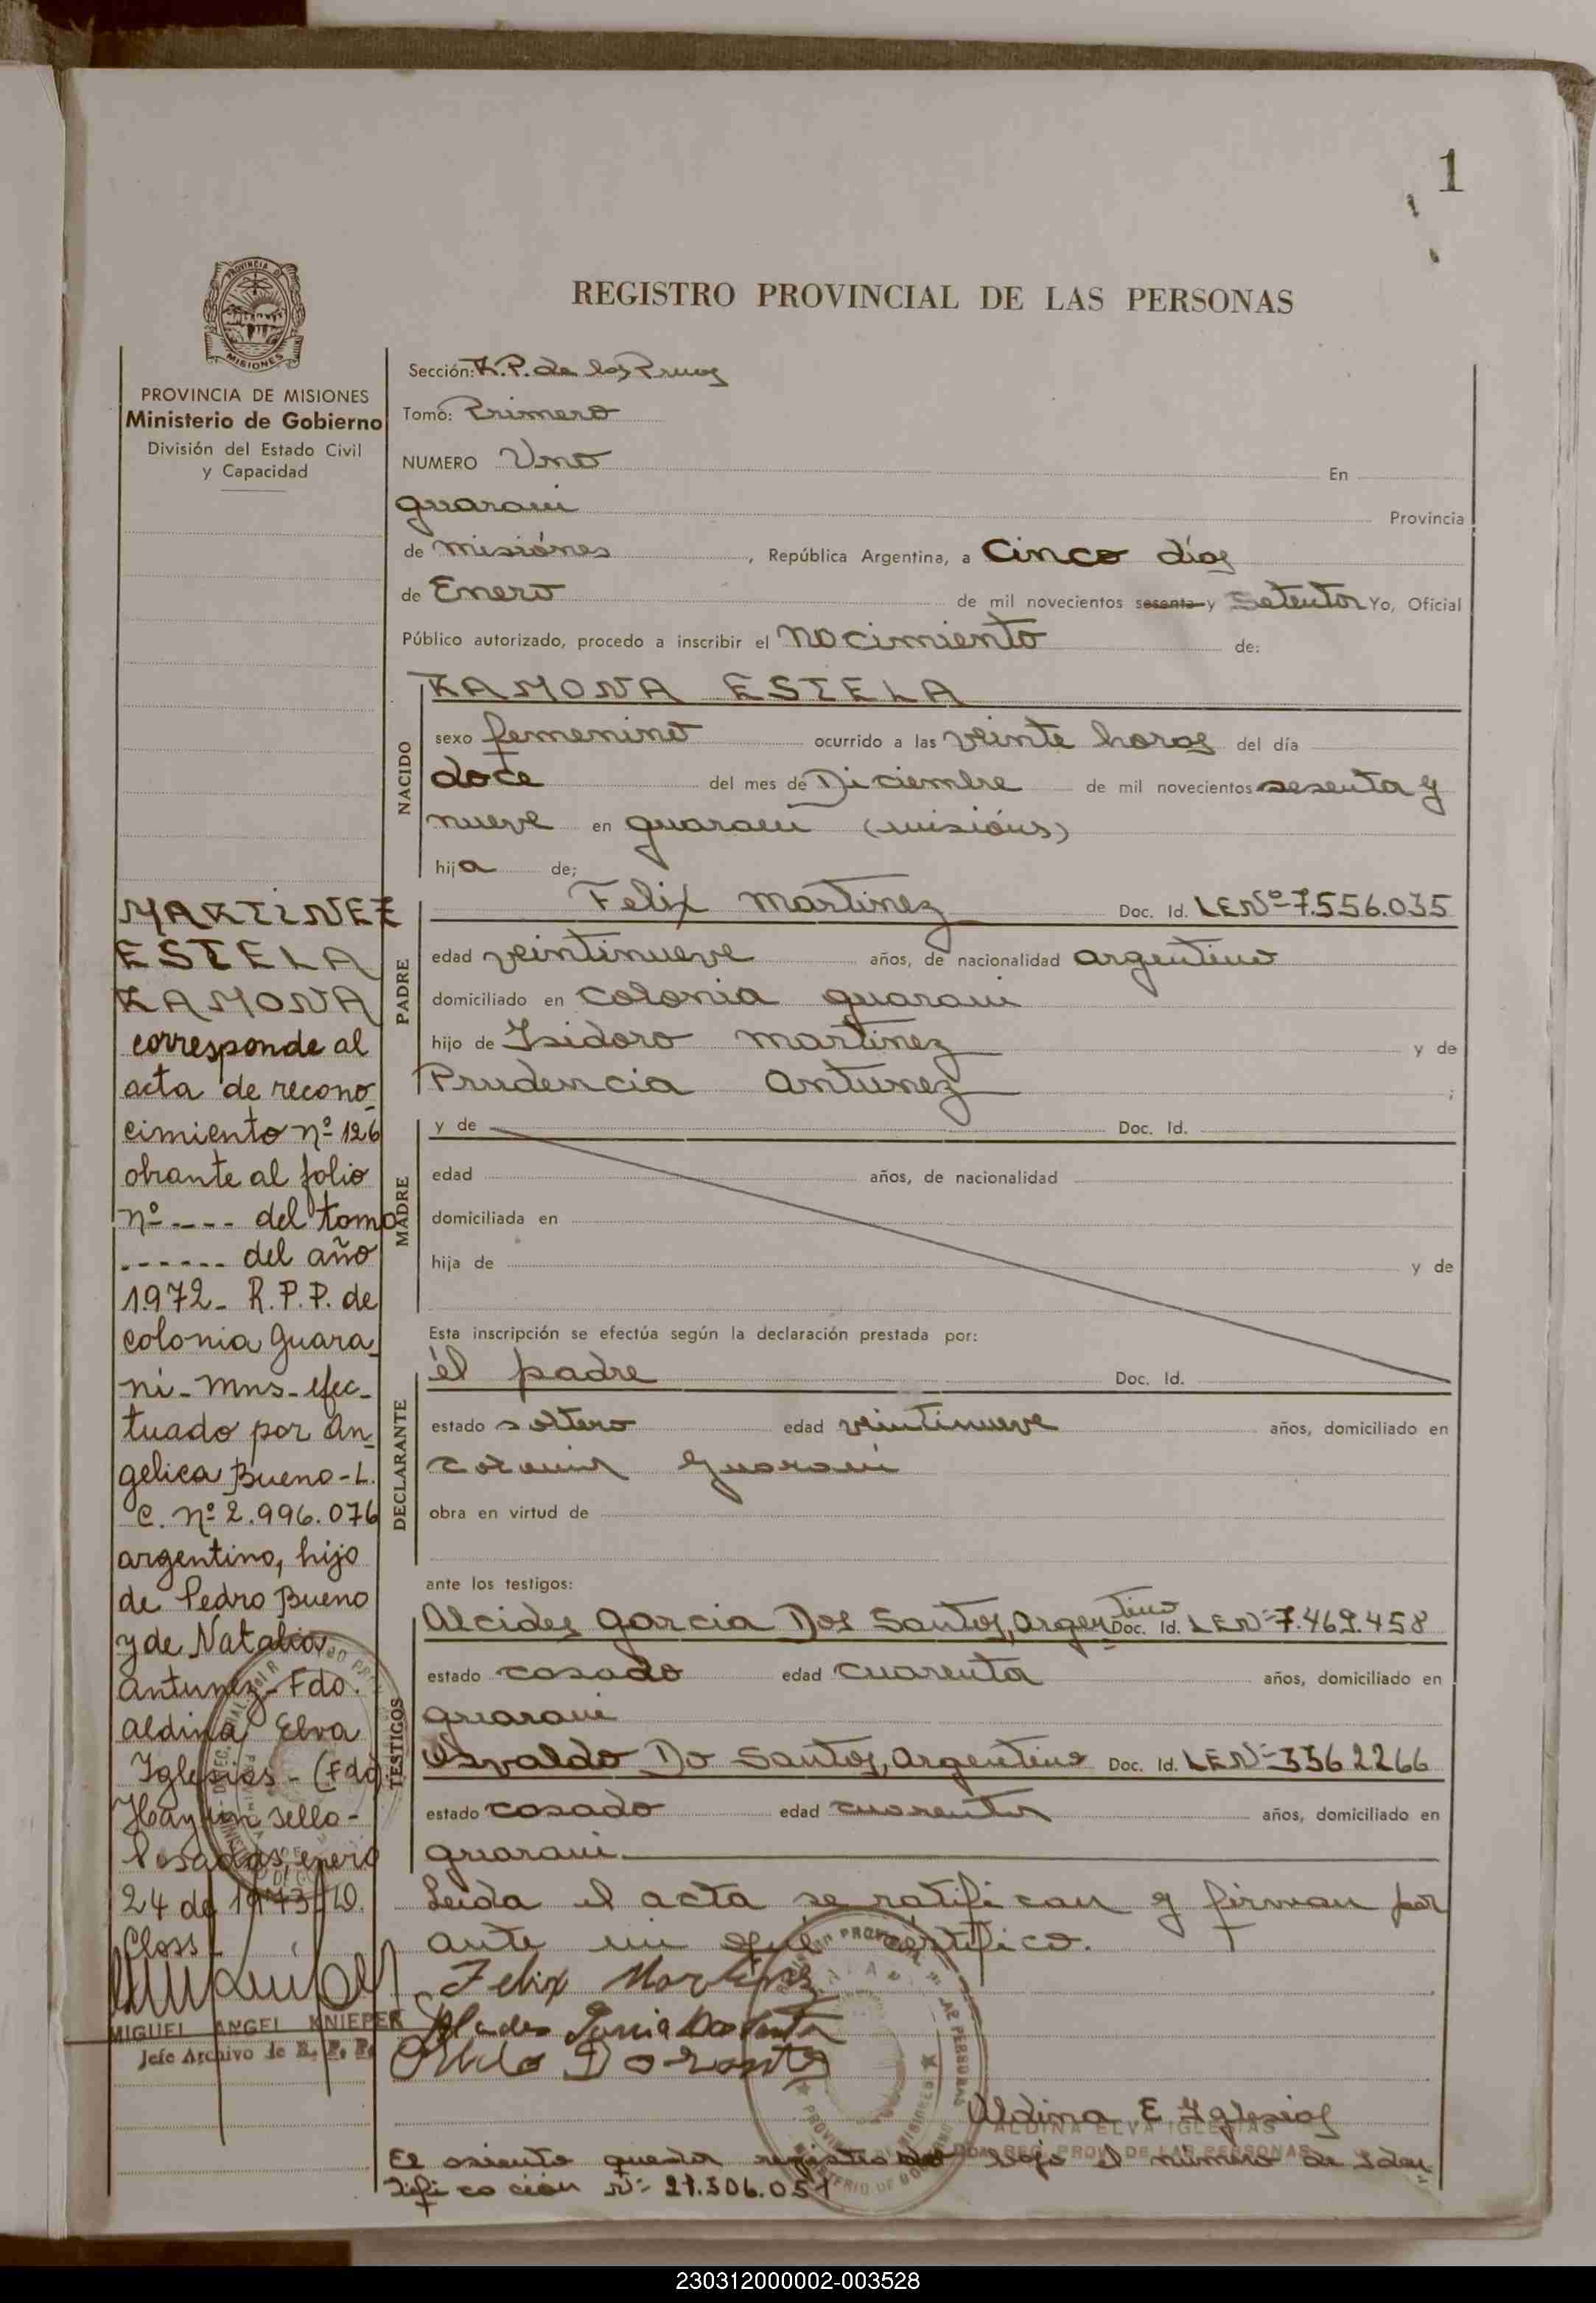 1
PROVINCIA DE MISIONES
Ministerio de Gobierno
División del Estado Civil
y Capacidad
REGISTRO PROVINCIAL DE LAS PERSONAS
Sección: R.P. de las
Tomo: Primero
NUMERO Uno En
guarani Provincia
de misiónes, República Argentina, a Cinco días
de Enero de mil novecientos sesenta y Setenta Yo, Oficial
Público autorizado, procedo a inscribir el nacimiento de:
NACIDO
RAMONA ESTELA
sexo femenino ocurrido a las veinte horas del día
doce del mes de Diciembre de mil novecientos sesenta y
nueve en guarani (misiónes)
hija de;
PADRE
Felix martinez Doc. Id. LENº 7.556.035
edad veintinueve años, de nacionalidad argentino
domiciliado en colonia guarani
hijo de Isidoro martinez y de
Prudencia antunez ;
MADRE
y de Doc. Id.
edad años, de nacionalidad
domiciliada en
hija de y de
Esta inscripción se efectúa según la declaración prestada por:
DECLARANTE
él padre Doc. Id.
estado soltero edad veintinueve años, domiciliado en
colonia guarani
obra en virtud de
ante los testigos:
TESTIGOS
Alcides garcia Dos Santos, argentino Doc. Id. LEN- 7.469.458
estado casado edad cuarenta años, domiciliado en
guarani
Osvaldo Do Santos, argentino Doc. Id. LEN- 3562266
estado casado edad cuarenta años, domiciliado en
guarani
Leida el acta se ratifican y firman por
ante mi que certifico.
Felix Martinez
Garcia Dos Santos
Aldina E Iglesias
ALDINA ELVA IGLESIAS
REG. PROV. DE LAS PERSONAS
El asiento queda registrado bajo el número de Iden
tificación Nº 21.306.051
MARTINEZ
ESTELA
RAMONA
corresponde al
acta de recono
cimiento nº 126
obrante al folio
nº ---- del tomo
------ del año
1972- R.P.P. de
colonia Guara
ni - Mns - efec-
tuado por An
gelica Bueno - L.
C. nº 2.996.076
argentino, hijo
de Pedro Bueno
y de Natalia
Antunez - Fdo.
Aldina Elva
Iglesias - (Fdo)
Hay un sello -
Posadas, enero
24 de 1973
Closs
MIGUEL ANGEL KNIEPER
Jefe Archivo de R. P. P.
230312000002-003528